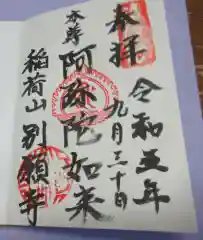 奉拝
令和五年
九月三十日
本尊
阿弥陀如来
稲荷山
別願寺